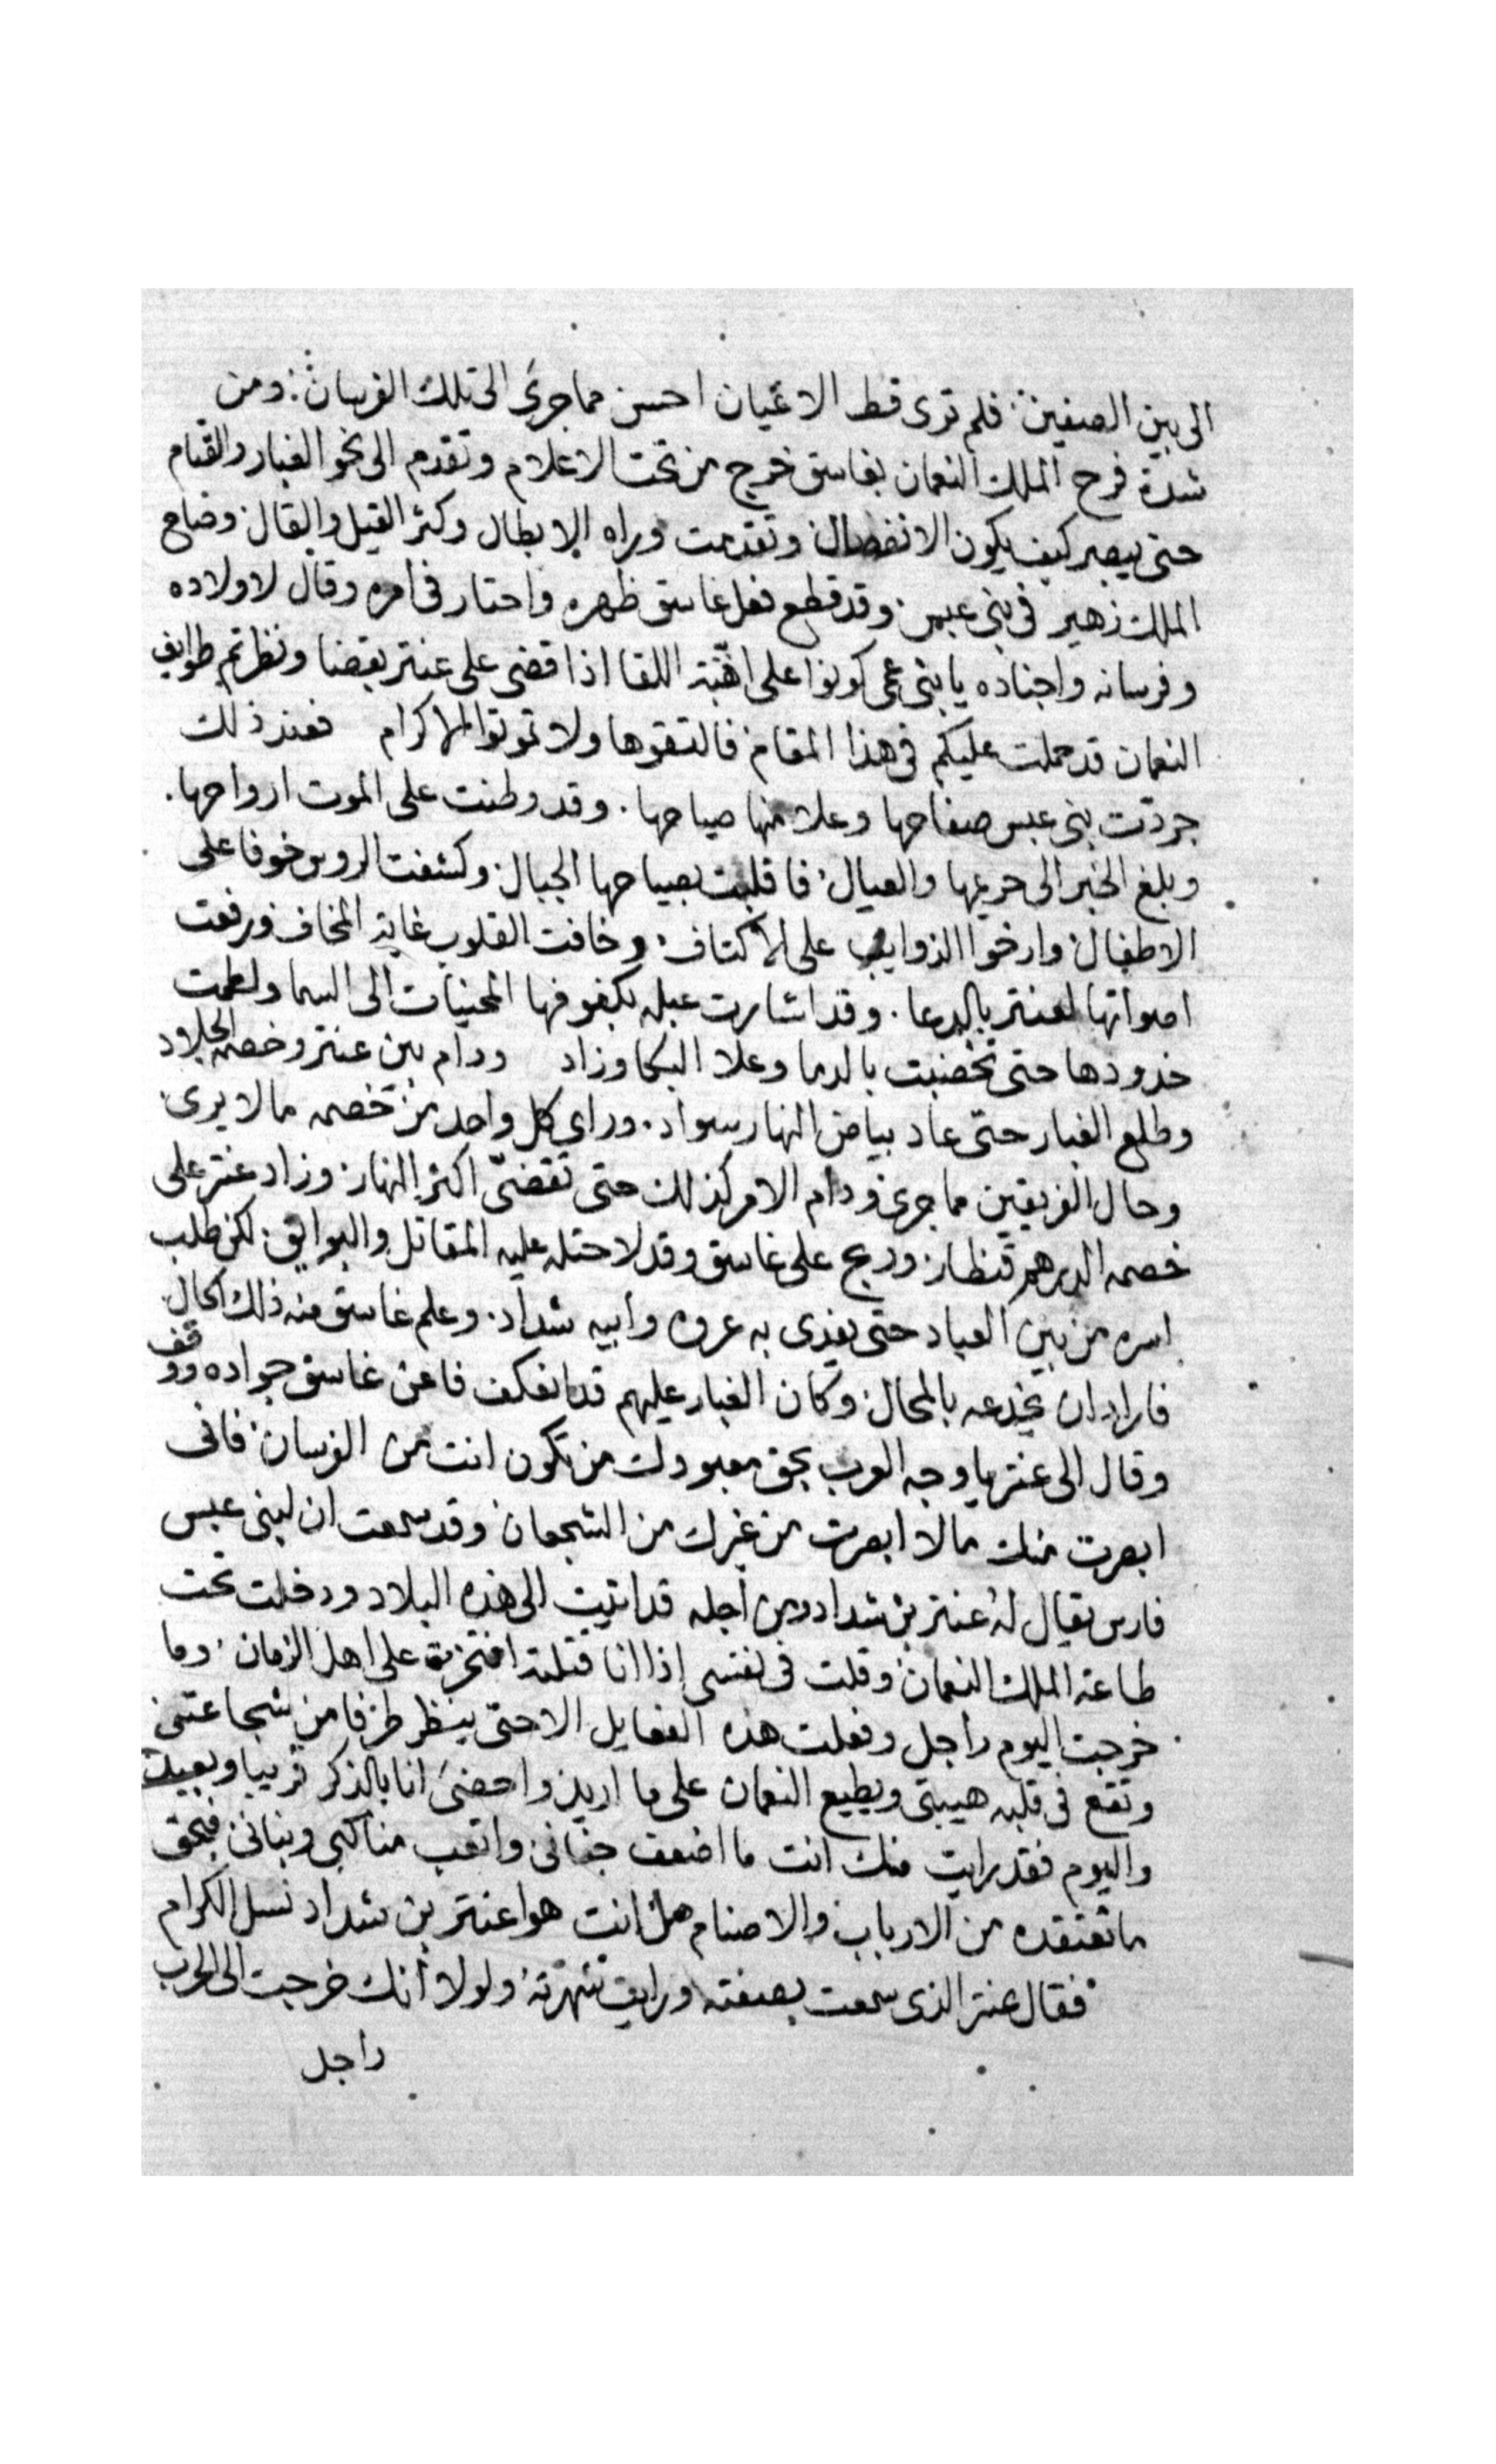 الى بين الصفين فلم ترى قط الاعيان احسن مما جرى الى تلك الفرسان ومن
شدة فرح الملك النعمان بغاسق خرج من تحت الاعلام وتقدم الى نحو الغبار والقتام
حتى يبصر كيف يكون الانفصال وتقدمت وراه الابطال وكثر القيل والقال وصاح
الملك زهير فى بنى عبس وقد قطع فعل غاسق ظهره واحتار فى امره وقال لاولاده
وفرسانه واجناده يا بنى عمى كونوا على اهبة اللقا اذا قضى على عنتر بقضا ونظرتم طوايف
النعمان قد حملت عليكم فى هذا المقام فالتقوها ولا تموتوا الا كرام فعند ذلك
جردت بنى عبس صفاحها وعلا منها صياحها . وقد وطنت على الموت ارواحها .
وبلغ الخبر الى حريمها والعيال فاقلبت بصياحها الجبال وكشفت الروس خوفا على
الاطفال وارخوا الذوايب على الاكتاف وخافت القلوب غاية المخاف ورفعت
اصواتها لعنتر بالدعا . وقد اشارت عبله بكفوفها المحنيات الى السما ولطمت
خدودها حتى تخضبت بالدما وعلا البكا وزاد ودام بين عنتر وخصمه الجلاد
وطلع الغبار حتى عاد بياض النهار سواد . وراى كل واحد من خصمه ما لا يرى
وحال الفريقين مما جرى ودام الامر كذلك حتى تقضى اكثر النهار وزاد عنتر على
خصمه الدرهم قنطار ورجح على غاسق وقد لاحت له عليه المقاتل والبوايق لكن طلب
اسره من بين العباد حتى يفدى به عروه وابيه شداد . وعلم غاسق منه ذلك الحال
فاراد ان يخدعه بالمحال وكان الغبار عليهم قد انعكف فاعن غاسق جواده ووقف
وقال الى عنتر يا وجه العرب بحق معبودك من تكون انت من الفرسان فانى
ابصرت منك ما لا ابصرت من غيرك من الشجعان وقد سمعت ان لبنى عبس
فارس يقال له عنتر بن شداد ومن اجله قد اتيت الى هذه البلاد ودخلت تحت
طاعة الملك النعمان وقلت فى نفسى اذا انا قتلته افتخرت على اهل الزمان وما
خرجت اليوم راجل وفعلت هذه الفعايل الا حتى ينظر طرفا من شجاعتى
وتقع فى قلبه هيبتى ويطيع النعمان على ما اريد واحضى انا بالذكر قريبا وبعيد
واليوم فقد رايت منك انت ما اضعف جنانى واتعب مناكبى وبنانى فبحق
ما تعتقده من الارباب والاصنام هل انت هوا عنتر بن شداد نسل الكرام
فقال عنتر الذى سمعت بصفته ورايت شهرته ولولا انك خرجت الى الحرب
راجل